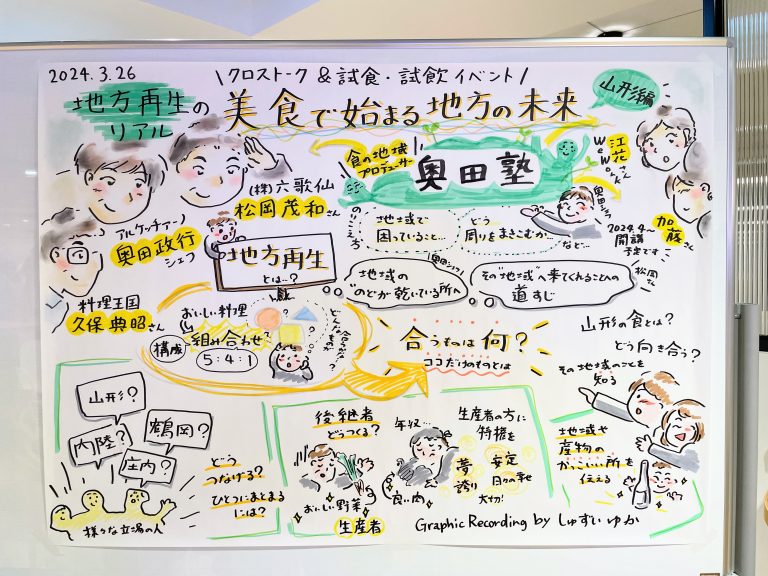 2024.3.26
\クロストーク&試食・試飲イベント/
地方再生の
リアル
美食で始まる地方の未来
山形編
食の地域
プロデューサー
奥田塾
(株)六歌仙
松岡茂和さん
アルケッチァーノ
奥田政行
シェフ
料理王国
久保典昭さん
WeWork
江花さん
加藤さん
2024.4〜
開講
予定です
地域で
困っていること…
どう
周りをまきこむか
など…
地方再生
とは…?
奥田シェフ
地域の
"のどが乾いている所へ
その"地域"へ来てくれる人への
道すじ
松岡さん
おいしい料理
構成
組み合わせ
5:4:1
合うものは何?
ココだけのものとは
山形の食とは?
どう向き合う?
その地域のことを
知る
山形?
内陸?
鶴岡?
庄内?
様々な立場の人
どう
つなげる?
ひとつにまとまる
には?
後継者
どうつくる?
おいしい野菜
生産者
年収…
良い肉
生産者の方に
特権を
夢
誇り
安定
大切!
地域や
産物の
かっこいい所を
伝える
Graphic Recording by しゅすい ゆか